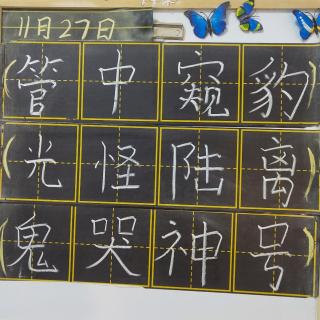 11月27日
(管中窥豹)
(光怪陆离)
(鬼哭神号)